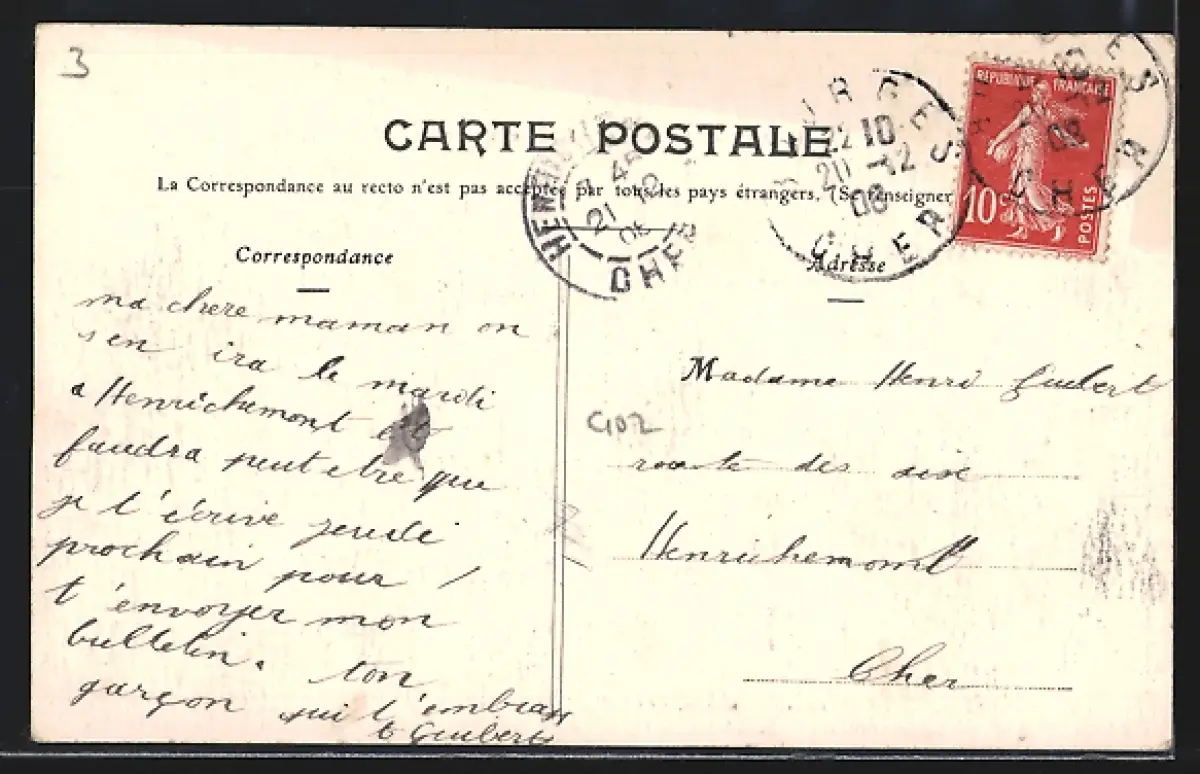 3
CARTE POSTALE
La Correspondance au recto n'est pas acceptée par tous les pays étrangers. (Se renseigner
Correspondance
Adresse
RÉPUBLIQUE FRANÇAISE
10 c
POSTES
BOURGES
22 10
20 - 12
08
CHER
HENRICHEMONT
45
21 12
08
CHER
ma chere maman on
s'en ira le mardi
a Henrichemont
faudra peut etre que
je t'écrive jeudi
prochain pour
t'envoyer mon
bulletin. ton
garçon qui t'embrasse
Guibert
Madame Henri Guibert
G102
route des aix
Henrichemont
Cher